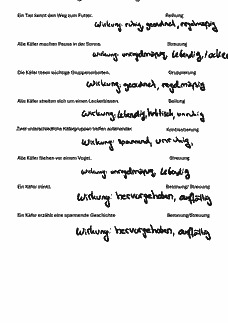 Ein Tier kennt den Weg zum Futter. Reihung
Wirkung: ruhig, geordnet, regelmäßig
Alle Käfer machen Pause in der Sonne. Streuung
Wirkung: unregelmäßig, lebendig, locker
Die Käfer bilden wichtige Gruppenarbeiten. Gruppierung
Wirkung: geordnet, regelmäßig
Alle Käfer streiten sich um einen Leckerbissen. Ballung
Wirkung: lebendig, hektisch, unruhig
Zwei unterschiedliche Käfergruppen treffen aufeinander. Kontrastierung
Wirkung: spannend, unruhig,
Alle Käfer fliehen vor einem Vogel. Streuung
Wirkung: unregelmäßig, lebendig
Ein Käfer Betonung/Streuung
Wirkung: hervorgehoben, auffällig
Ein Käfer erzählt eine spannende Geschichte Betonung/Streuung
Wirkung: hervorgehoben, auffällig